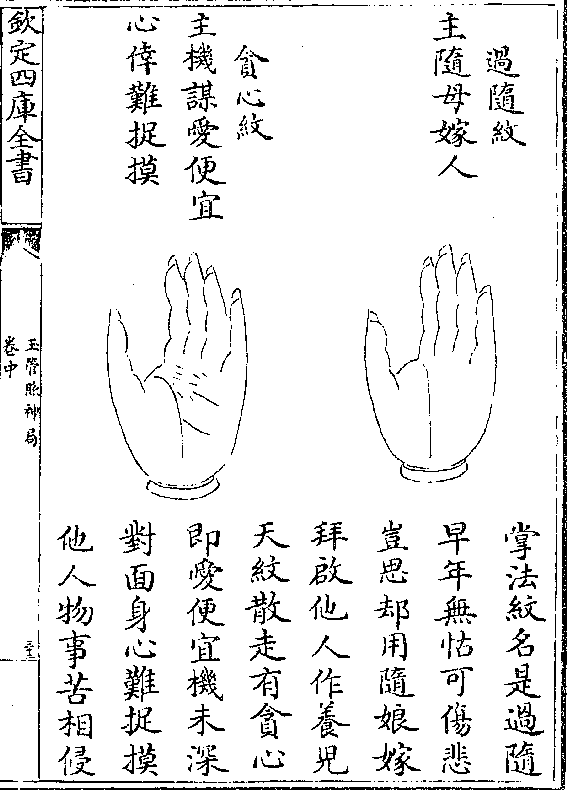 過隨紋
主隨母嫁人
掌法紋名是過隨
早年無怙可傷悲
豈思却用隨娘嫁
拜啟他人作養兒
貪心紋
主機謀愛便宜
心倖難捉摸
天紋散走有貪心
即愛便宜機未深
對面身心難捉摸
他人物事苦相侵
欽定四庫全書
玉管照神局
卷中